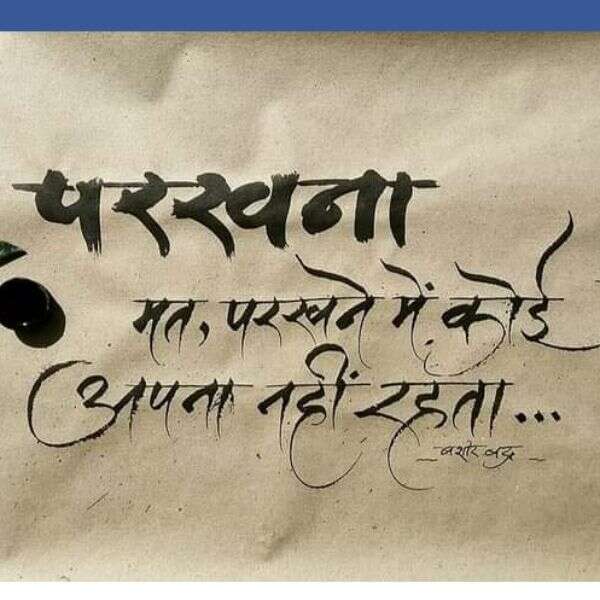 परखना
मत, परखने में कोई
अपना नहीं रहता...
_बशीर बद्र_